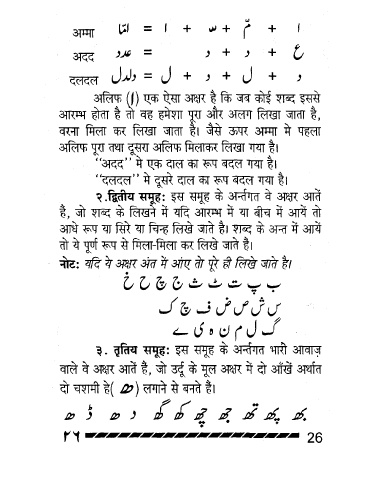 अम्मा امّا = ا + مّ + ا
अदद عدد = د + د + ع
दलदल دلدل = ل + د + ل + د
अलिफ (ا) एक ऐसा अक्षर है कि जब कोई शब्द इससे
आरम्भ होता है तो वह हमेशा पूरा और अलग लिखा जाता है,
वरना मिला कर लिखा जाता है। जैसे ऊपर अम्मा मे पहला
अलिफ पूरा तथा दूसरा अलिफ मिलाकर लिखा गया है।
"अदद" मे एक दाल का रूप बदल गया है।
"दलदल" मे दूसरे दाल का रूप बदल गया है।
२.द्वितीय समूह: इस समूह के अर्न्तगत वे अक्षर आतें
हैं, जो शब्द के लिखने में यदि आरम्भ में या बीच में आयें तो
आधे रूप या सिरे या चिन्ह लिखे जाते है। शब्द के अन्त में आयें
तो ये पूर्ण रूप से मिला-मिला कर लिखे जाते है।
नोट: यदि ये अक्षर अंत में आंए तो पूरे ही लिखे जाते है।
ب پ ت ٹ ث ج چ ح خ
س ش ص ض ف ق ک
گ ل م ن ہ ی ے
३. तृतिय समूह: इस समूह के अर्न्तगत भारी आवाज़
वाले वे अक्षर आतें हैं, जो उर्दू के मूल अक्षर में दो आँखें अर्थात
दो चशमी हे( ھ ) लगाने से बनते है।
بھ پھ تھ جھ چھ کھ گھ دھ ڈھ
٢٦ 26